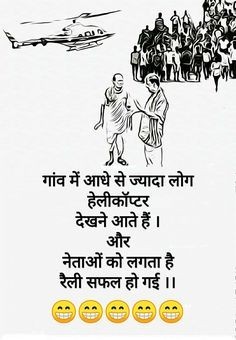 गांव में आधे से ज्यादा लोग
हेलीकॉप्टर
देखने आते हैं ।
और
नेताओं को लगता है
रैली सफल हो गई ।।
😁😁😁😁😁